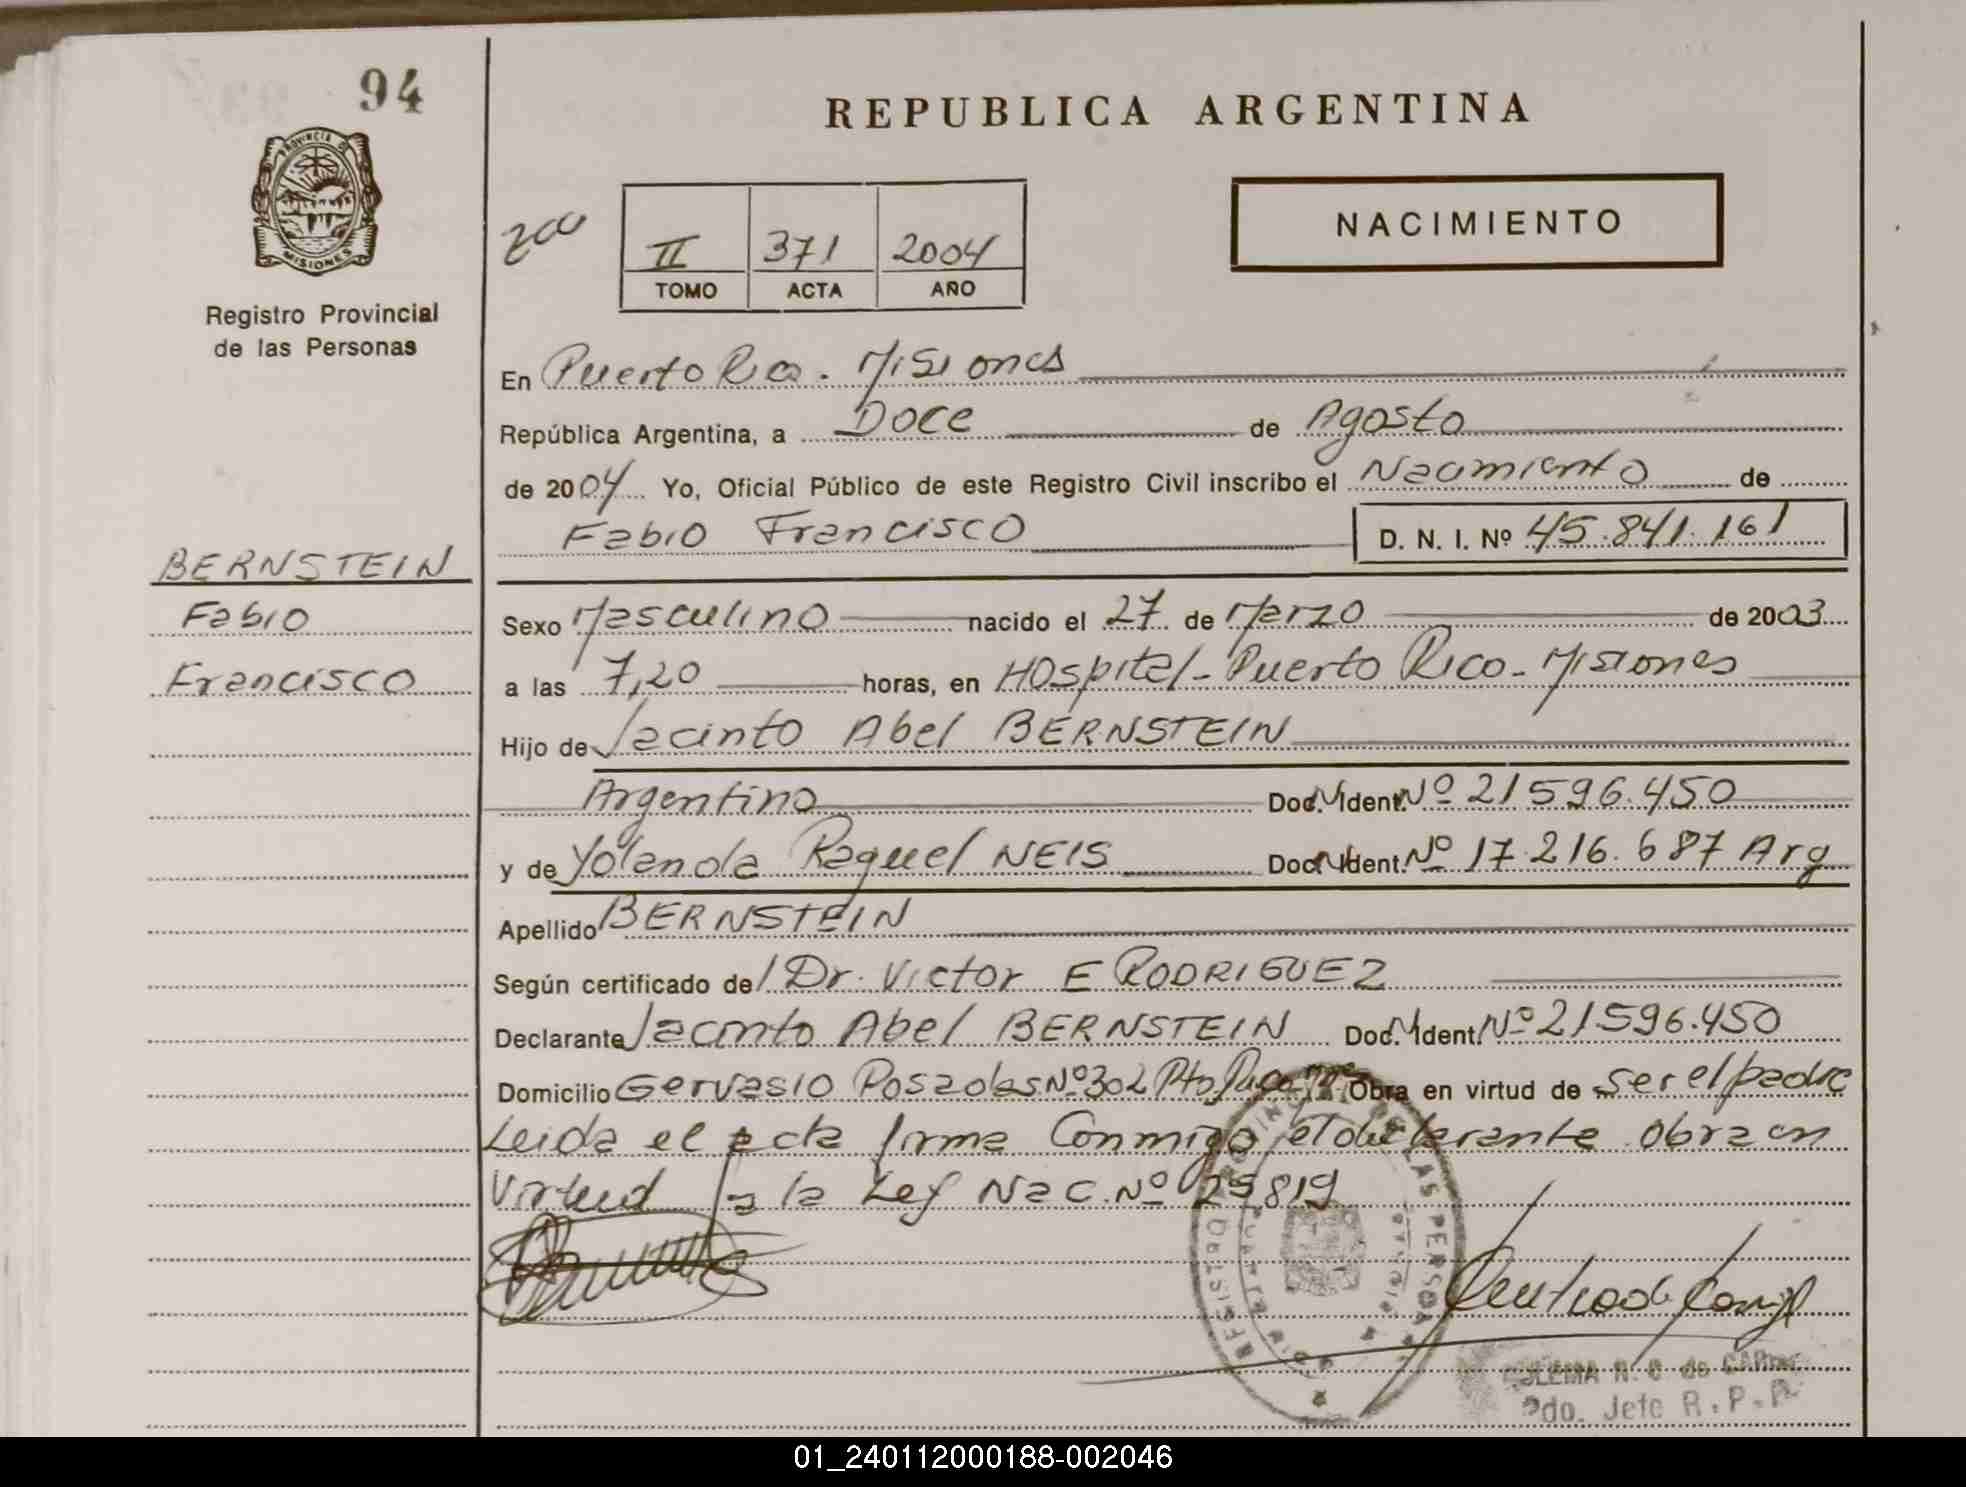 94
PROVINCIA DE
MISIONES
Registro Provincial
de las Personas
REPUBLICA ARGENTINA
200
II 371 2004
TOMO ACTA AÑO
NACIMIENTO
En Puerto Rico. Misiones
República Argentina, a Doce de Agosto
de 2004 Yo, Oficial Público de este Registro Civil inscribo el Nacimiento de
Fabio Francisco D. N. I. Nº 45.841.161
BERNSTEIN
Fabio
Francisco
Sexo Masculino nacido el 27 de Marzo de 2003
a las 7,20 horas, en Hospital - Puerto Rico - Misiones
Hijo de Jacinto Abel BERNSTEIN
Argentino Doc. Ident. Nº 21596.450
y de Yolanda Raquel NEIS Doc. Ident. Nº 17.216.687 Arg
Apellido BERNSTEIN
Según certificado de Dr. Victor E RODRIGUEZ
Declarante Jacinto Abel BERNSTEIN Doc. Ident. Nº 21596.450
Domicilio Gervasio Posadas Nº 302 Pto Rico Obra en virtud de ser el padre
Leida el acta firma Conmigo el declarante. Obra en
Virtud a la Ley Nac. Nº 25819
REGISTRO PROVINCIAL DE LAS PERSONAS
PUERTO RICO
MISIONES
ZULEMA N. C. de
2do. Jefe R. P. P.
01_240112000188-002046